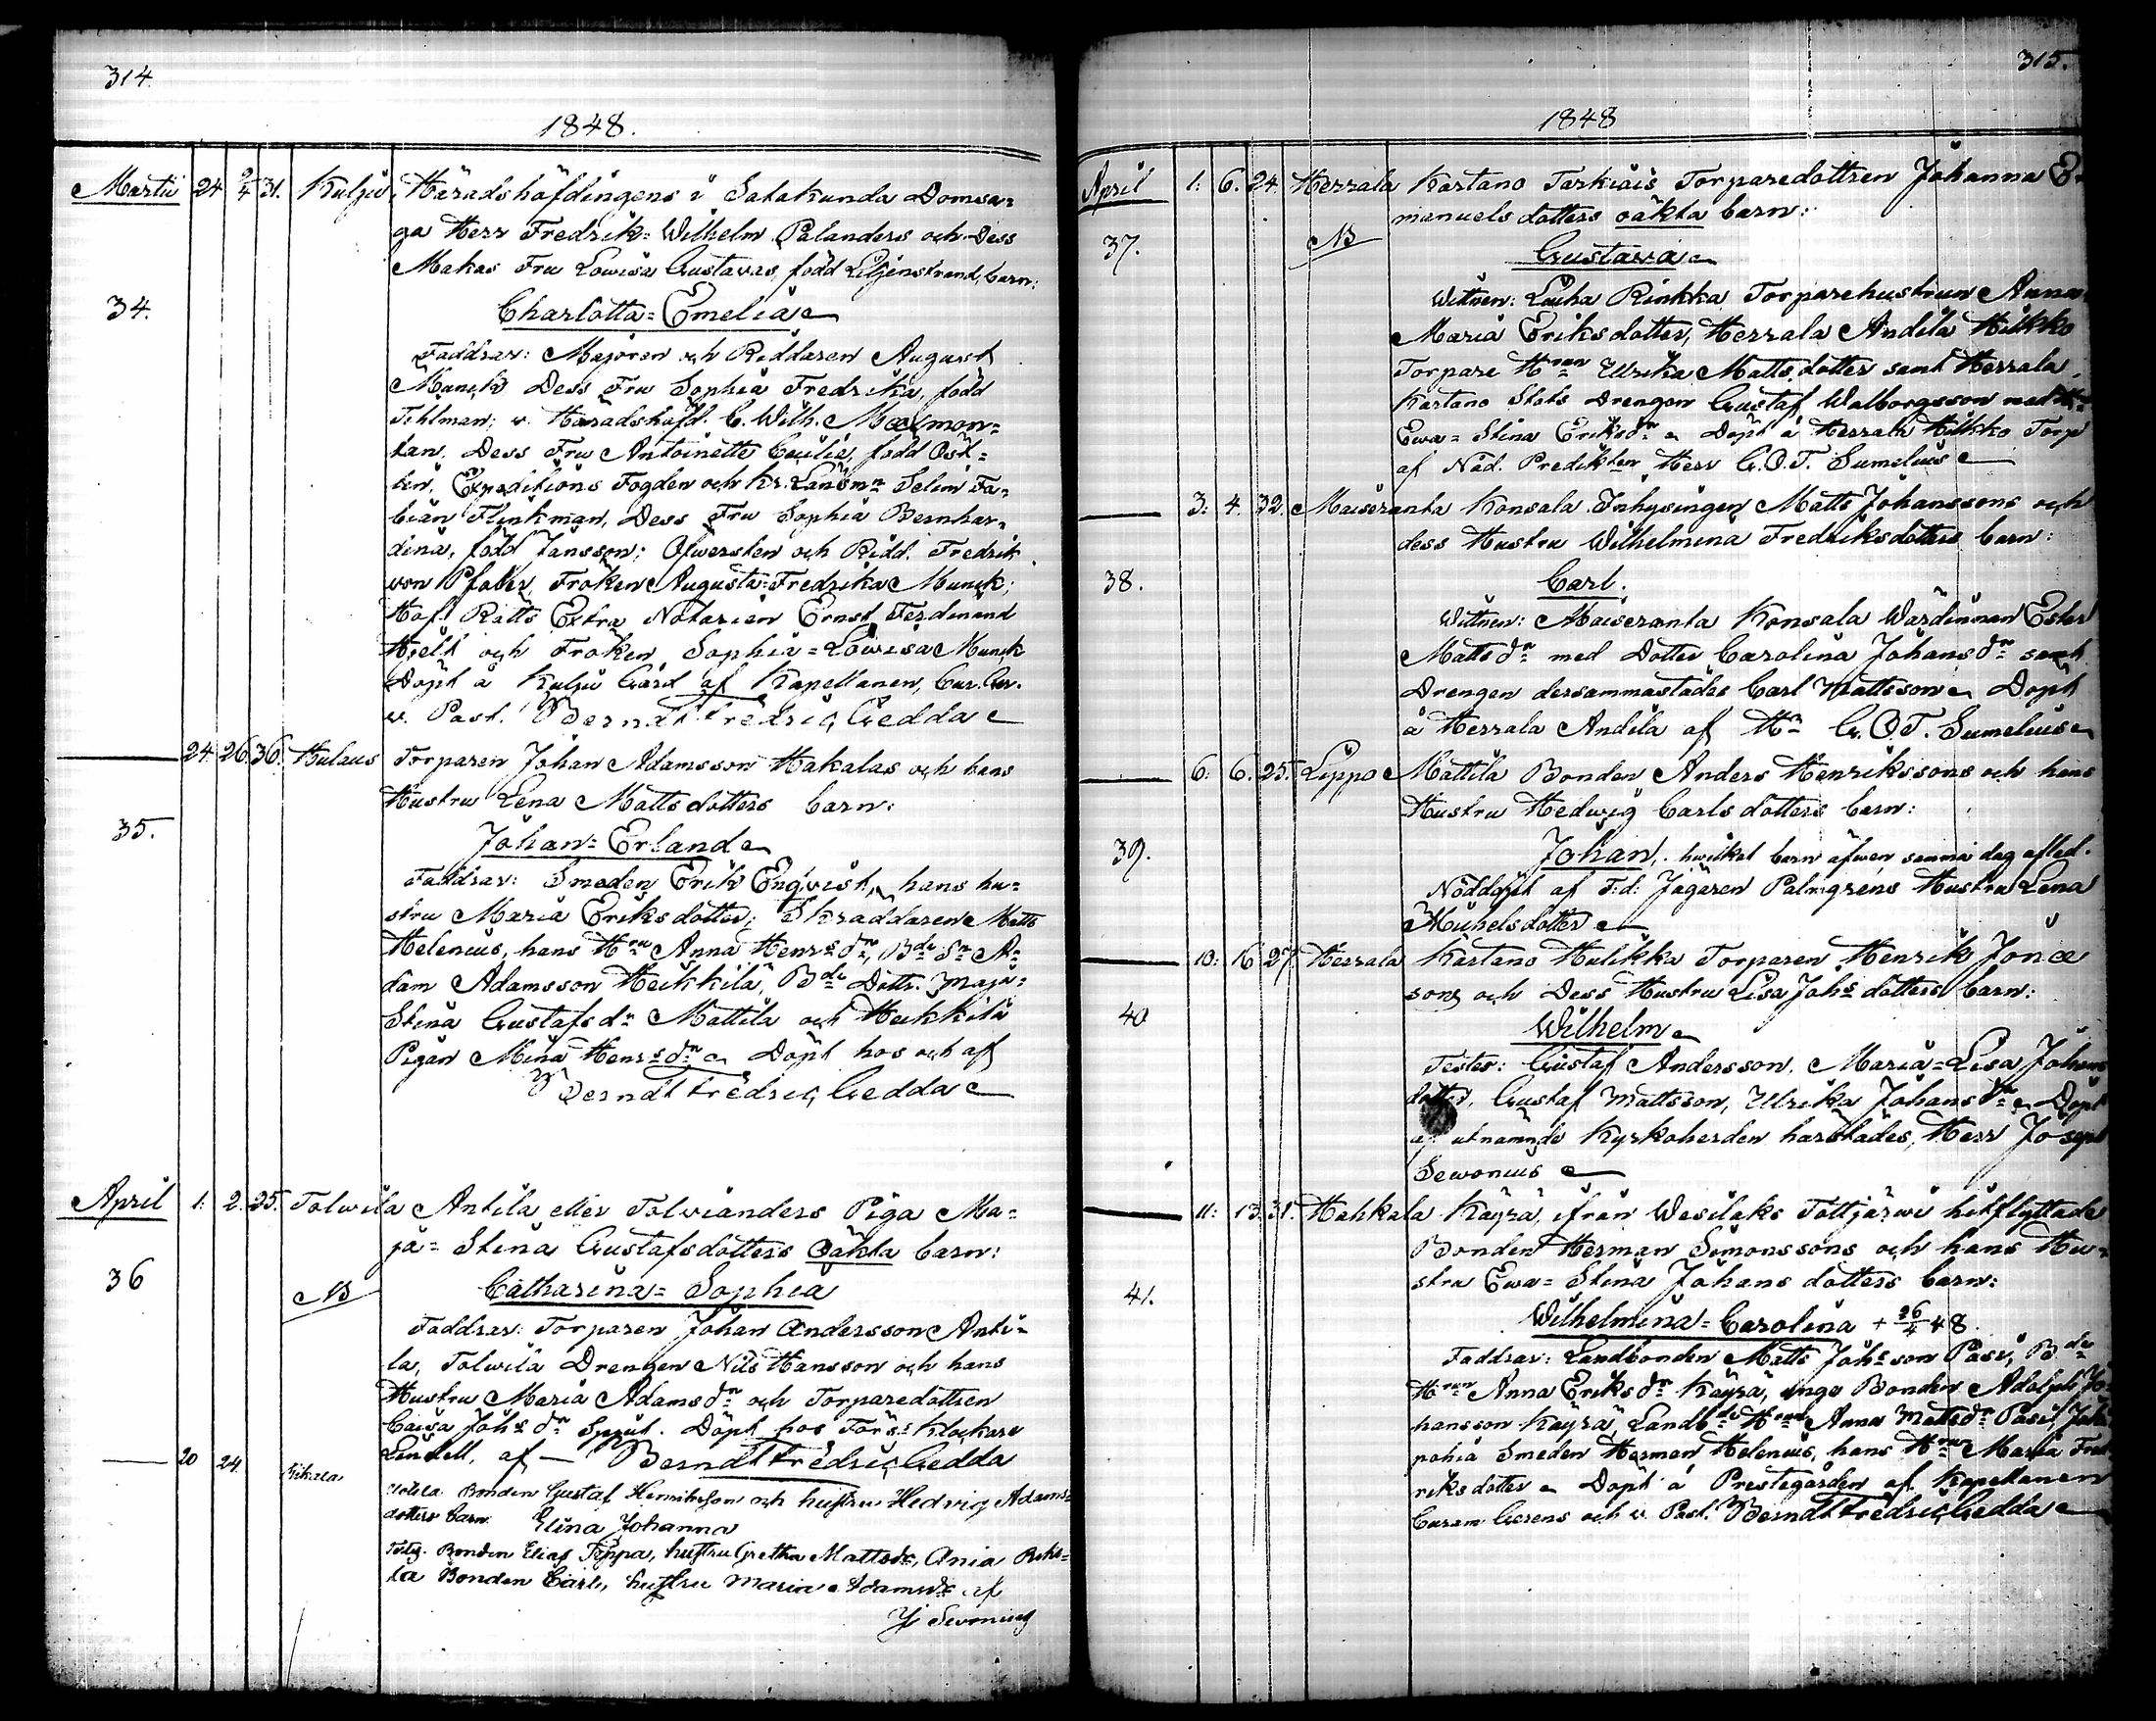 314.
1848.
Martii 24 2/4 31. Kulju Häradshöfdingens i Satakunda Domsa=
ga Herr Fredrik=Wilhelm Palanders och Dess
Makas Fru Lowisa Gustavas, född Liljenstrand, barn:
34.
Charlotta=Emelia
Faddrar: Majoren och Riddaren August
Munck Dess Fru Sophia Fredrika, född
Tihlman; v. Häradshöfd. C. Wilh. Maxmon=
tan, Dess Fru Antoinette Cecilie, född Öst=
lin, Expeditions Fogden och Kr. Länsmn Selim Fa=
bian Flinkman, Dess Fru Sophia Bernhar=
dina, född Jansson; Öfwersten och Ridd. Fredrik
von Pfaler, Fröken Augusta=Fredrika Munck;
Hof Rätts Extra Notarien Ernst Ferdinand
Hjelt och Fröken Sophia=Lowisa Munck
Döpt å Kulju Gård af Kapellanen, Cur. Ger.
v. Past. Berndt Fredric Gedda
24. 26. 36. Hulaus Torparen Johan Adamsson Hakalas och hans
Hustru Lena Mattsdotters barn:
35.
Johan=Erland
Faddrar: Smeden Erik Engvist, hans hu=
stru Maria Eriksdotter; Skraddaren Matts
Helenius, hans Hru Anna Henrsdr, Bde Sn A=
dam Adamsson Heikkilä, Bde Dottr. Maja=
Stina Gustafsdr Mattila och Heikkilä
Pigan Mina Henrsdr Döpt hos och af
Berndt Fredric Gedda
April 1. 2. 25. Tolwila Antila eller Tolvianders Piga Ma=
ja=Stina Gustafsdotters oäkta barn:
36
NB
Catharina=Sophia
Faddrar: Torparen Johan Andersson Anti=
la, Tolwila Drengen Nils Hansson och hans
Hustru Maria Adamsdr och Torparedottren
Caisa Johsdr Sprut. Döpt hos Förs: Klockare
Lindell, af Berndt Fredric Gedda
20 24 Bonden Gustaf Henriksson och hustru Hedvig Adams=
dotters barn Elina Johanna
Bonden Elias Peppa, hustru Gretha Mattsdr, Ania
Bonden Carl, hustru Maria Adamsdr af
J Sevonius
315.
1848
April 1. 6. 24. Herrala Kartano Tarkiais Torparedottren Johanna E=
manuelsdotters oäkta barn:
37.
NB
Gustava
Wittnen: Rinkka Torparehustrun Anna
Maria Eriksdotter, Herrala Andila Hilkko
Torpare Hrun Ulrika Mattsdotter samt Herrala
Kartano Stats Drengen Gustaf Walborgsson med
Ewa=Stina Eriksdr Döpt å Herrala Hilkko Torp
af Nåd. Predikten Herr G. O. T. Sumelius
3. 4. 32. Maiseranta Konsala Inhysingen Matts Johanssons och
dess Hustru Wilhelmina Fredriksdotters barn:
38.
Carl.
Wittnen: Maiseranta Konsala Wärdinnan Ester
Mattsdr med Dotter Carolina Johansdr samt
Drengen dersammastädes Carl Mattsson Döpt
å Herrala Andila af Hr G. O. T. Sumelius
6. 6. 25. Lippo Mattila Bonden Anders Henrikssons och hans
Hustru Hedwig Carlsdotters barn:
39.
Johan, hwilket barn äfwen samma dag afled.
Nöddöpt af F:d: Jägaren Palmgrens Hustru Lena
Michelsdotter
10. 16 27 Herrala Kartano Hulikka Torparen Henrik Jonæ
sons och Dess Hustru Lisa Johsdotters barn:
40
Wilhelm
Testes: Gustaf Andersson, Maria=Lisa Johans
dotter, Gustaf Mattsson, Ulrika Johansdr Döpt
af utnämnde Kyrkoherden härstädes, Herr Joseph
Sewonius
11. 13. 31. Hahkala Käyrä, ifrån Wesilaks Tottjärwi hitflyttade
Bonden Herman Simonssons och hans Hu=
stru Ewa=Stina Johansdotters barn:
41.
Wilhelmina=Carolina + 26/4 48.
Faddrar: Landbonden Matts Johsson Pasi, Bde
Hrun Anna Eriksdr Käyrä, unga Bonden Adolph Jo=
hansson Käyrä, Landbde Hrun Anna Mattsdr Pasi,
pohja Smeden Herman Helenius, hans Hru Maria Fred
riksdotter Döpt å Prestegården af Kapellanen
Curam Gerens och v. Past. Berndt Fredric Gedda